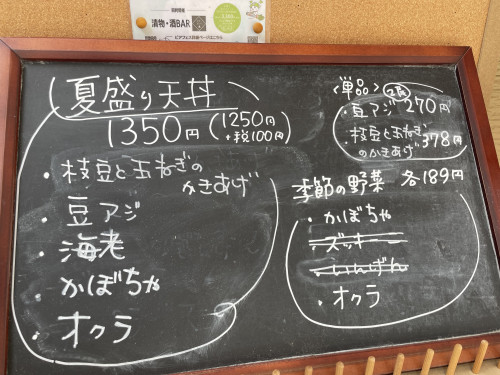 漬物・酒BAR
夏盛り天丼
1350円 (1250円
+税100円)
・枝豆と玉ねぎの
かきあげ
・豆アジ
・海老
・かぼちゃ
・オクラ
<単品>
・豆アジ 270円
・枝豆と玉ねぎの
のかきあげ 378円
季節の野菜 各189円
・かぼちゃ
・ズッキーニ
・いんげん
・オクラ